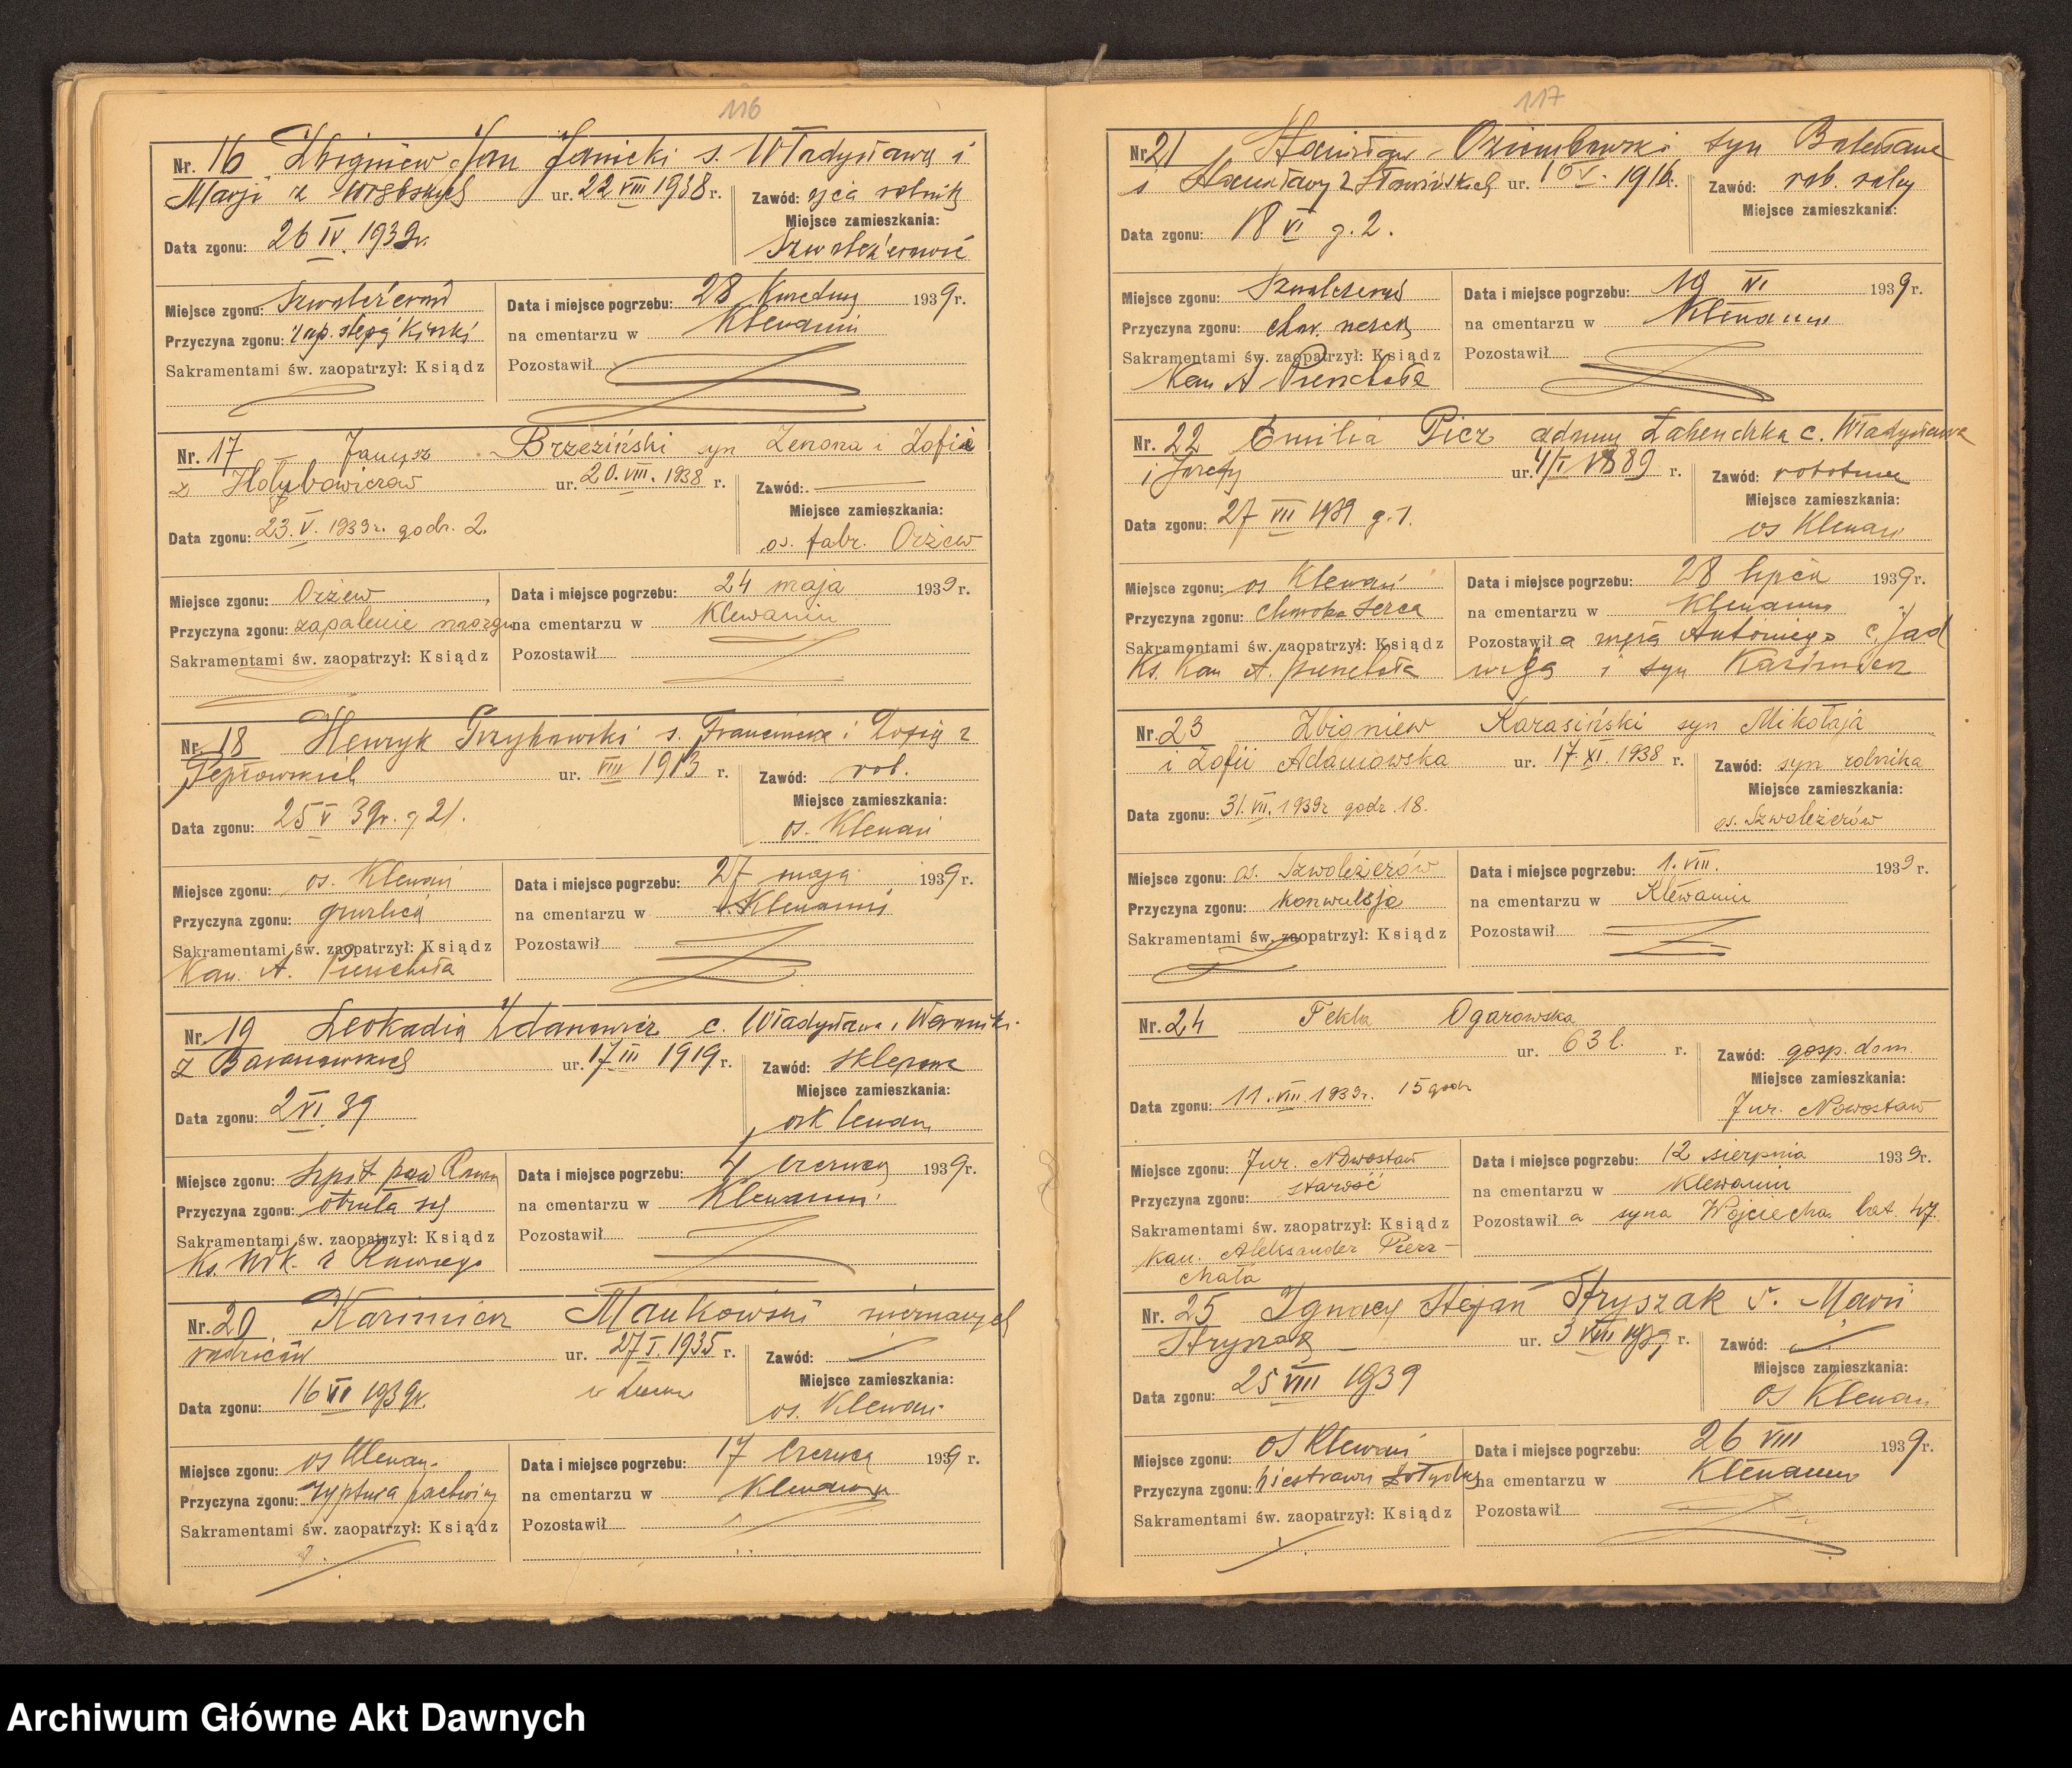 116
Nr. 16 Zbigniew Jan Janicki s. Władysława i
Marji z ur. 22 VIII 1938 r. Zawód: ojca rolnik
Miejsce zamieszkania:
Data zgonu: 26 IV. 1939r.
Miejsce zgonu: Data i miejsce pogrzebu: 28 Kwietnia 1939 r.
Przyczyna zgonu: zap. ślepej Kiszki na cmentarzu w Klewaniu
Sakramentami św. zaopatrzył: Ksiądz Pozostawił
Nr. 17 Janusz Brzeziński syn Zenona i Zofii
z Hołybowiczów ur. 20. VIII. 1938 r. Zawód:
Miejsce zamieszkania:
Data zgonu: 23. V. 1939r. godz. 2. os. fabr. Orżew
Miejsce zgonu: Orżew Data i miejsce pogrzebu: 24 maja 1939 r.
Przyczyna zgonu: zapalenie mózgu na cmentarzu w Klewaniu
Sakramentami św. zaopatrzył: Ksiądz Pozostawił
Nr. 18 Henryk Grzybowski s. Franciszka i Zofii z
Pepłowskich ur. VIII 1913 r. Zawód: rob.
Miejsce zamieszkania:
Data zgonu: 25 V 39r. g 21. os. Klewań
Miejsce zgonu: os. Klewań Data i miejsce pogrzebu: 27 maja 1939 r.
Przyczyna zgonu: gruźlica na cmentarzu w Klewaniu
Sakramentami św. zaopatrzył: Ksiądz Pozostawił
Kan. A. Pierzchała
Nr. 19 Leokadia Zdanowicz c. Władysława i Weroniki
z Baranowskich ur. 17 III 1919 r. Zawód: sklepowa
Miejsce zamieszkania:
Data zgonu: 2 VI. 39 os Klewań
Miejsce zgonu: Szpit pow Data i miejsce pogrzebu: 4 Czerwca 1939 r.
Przyczyna zgonu: otruła się na cmentarzu w Klewaniu
Sakramentami św. zaopatrzył: Ksiądz Pozostawił
Ks. Wik. z
Nr. 20 Kazimierz Mankowski nieznanych
rodziców ur. 27 I. 1935 r. Zawód:
Miejsce zamieszkania:
Data zgonu: 16 VI 1939r. os. Klewań
Miejsce zgonu: os Klewań Data i miejsce pogrzebu: 17 Czerwca 1939 r.
Przyczyna zgonu: na cmentarzu w Klewaniu
Sakramentami św. zaopatrzył: Ksiądz Pozostawił
117
Nr. 21 Stanisław syn Bolesława
i Stanisławy z ur. 10 V. 1916 r. Zawód: rob. rolny
Miejsce zamieszkania:
Data zgonu: 18 VI g. 2.
Miejsce zgonu: Data i miejsce pogrzebu: 19 VI 1939 r.
Przyczyna zgonu: na cmentarzu w Klewaniu
Sakramentami św. zaopatrzył: Ksiądz Pozostawił
Kan A Pierzchała
Nr. 22 Emilia Picz c. Władysława
i Józefy ur. 4/I 1889 r. Zawód: robotnica
Miejsce zamieszkania:
Data zgonu: 27 VII 1939 g. 1. os Klewań
Miejsce zgonu: os Klewań Data i miejsce pogrzebu: 28 lipca 1939 r.
Przyczyna zgonu: choroba serca na cmentarzu w Klewaniu
Sakramentami św. zaopatrzył: Ksiądz Pozostawiła męża Antoniego c. Jad
Ks. Kan A. Pierzchała wiga i syn Kazimierz
Nr. 23 Zbigniew Karasiński syn Mikołaja
i Zofii Adamowska ur. 17. XI. 1938 r. Zawód: syn rolnika
Miejsce zamieszkania:
Data zgonu: 31. VII. 1939r godz. 18. os. Szwoleżerów
Miejsce zgonu: os. Szwoleżerów Data i miejsce pogrzebu: 1. VIII. 1939 r.
Przyczyna zgonu: konwulsja na cmentarzu w Klewaniu
Sakramentami św. zaopatrzył: Ksiądz Pozostawił
Nr. 24 Tekla Ogarowska
ur. 63 l. r. Zawód: gosp. dom.
Miejsce zamieszkania:
Data zgonu: 11. VIII. 1939r. 15 godz Fur. Nowostaw
Miejsce zgonu: Fur. Nowostaw Data i miejsce pogrzebu: 12 sierpnia 1939 r.
Przyczyna zgonu: starość na cmentarzu w Klewaniu
Sakramentami św. zaopatrzył: Ksiądz Pozostawiła syna Wojciecha lat 47.
kan. Aleksander Pierz-
chała
Nr. 25 Ignacy Stefan Stryszak s. Marii
Stryszak ur. 3 VIII 1939 r. Zawód:
Miejsce zamieszkania:
Data zgonu: 25 VIII 1939 os Klewań
Miejsce zgonu: os Klewań Data i miejsce pogrzebu: 26 VIII 1939 r.
Przyczyna zgonu: na cmentarzu w Klewaniu
Sakramentami św. zaopatrzył: Ksiądz Pozostawił
Archiwum Główne Akt Dawnych